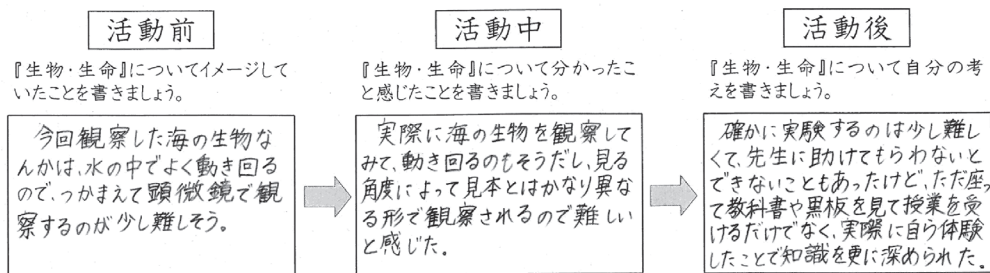 活動前
『生物・生命』についてイメージして
いたことを書きましょう。
今回観察した海の生物な
んかは、水の中でよく動き回る
ので、つかまえて顕微鏡で観
察するのが少し難しそう。
活動中
『生物・生命』について分かったこ
と感じたことを書きましょう。
実際に海の生物を観察して
みて、動き回るのもそうだし、見る
角度によって見本とはかなり異な
る形で観察されるので難しい
と感じた。
活動後
『生物・生命』について自分の考
えを書きましょう。
確かに実験するのは少し難し
くて、先生に助けてもらわないと
できないこともあったけど、ただ座っ
て教科書や黒板を見て授業を受
けるだけでなく、実際に自ら体験
したことで知識を更に深められた。